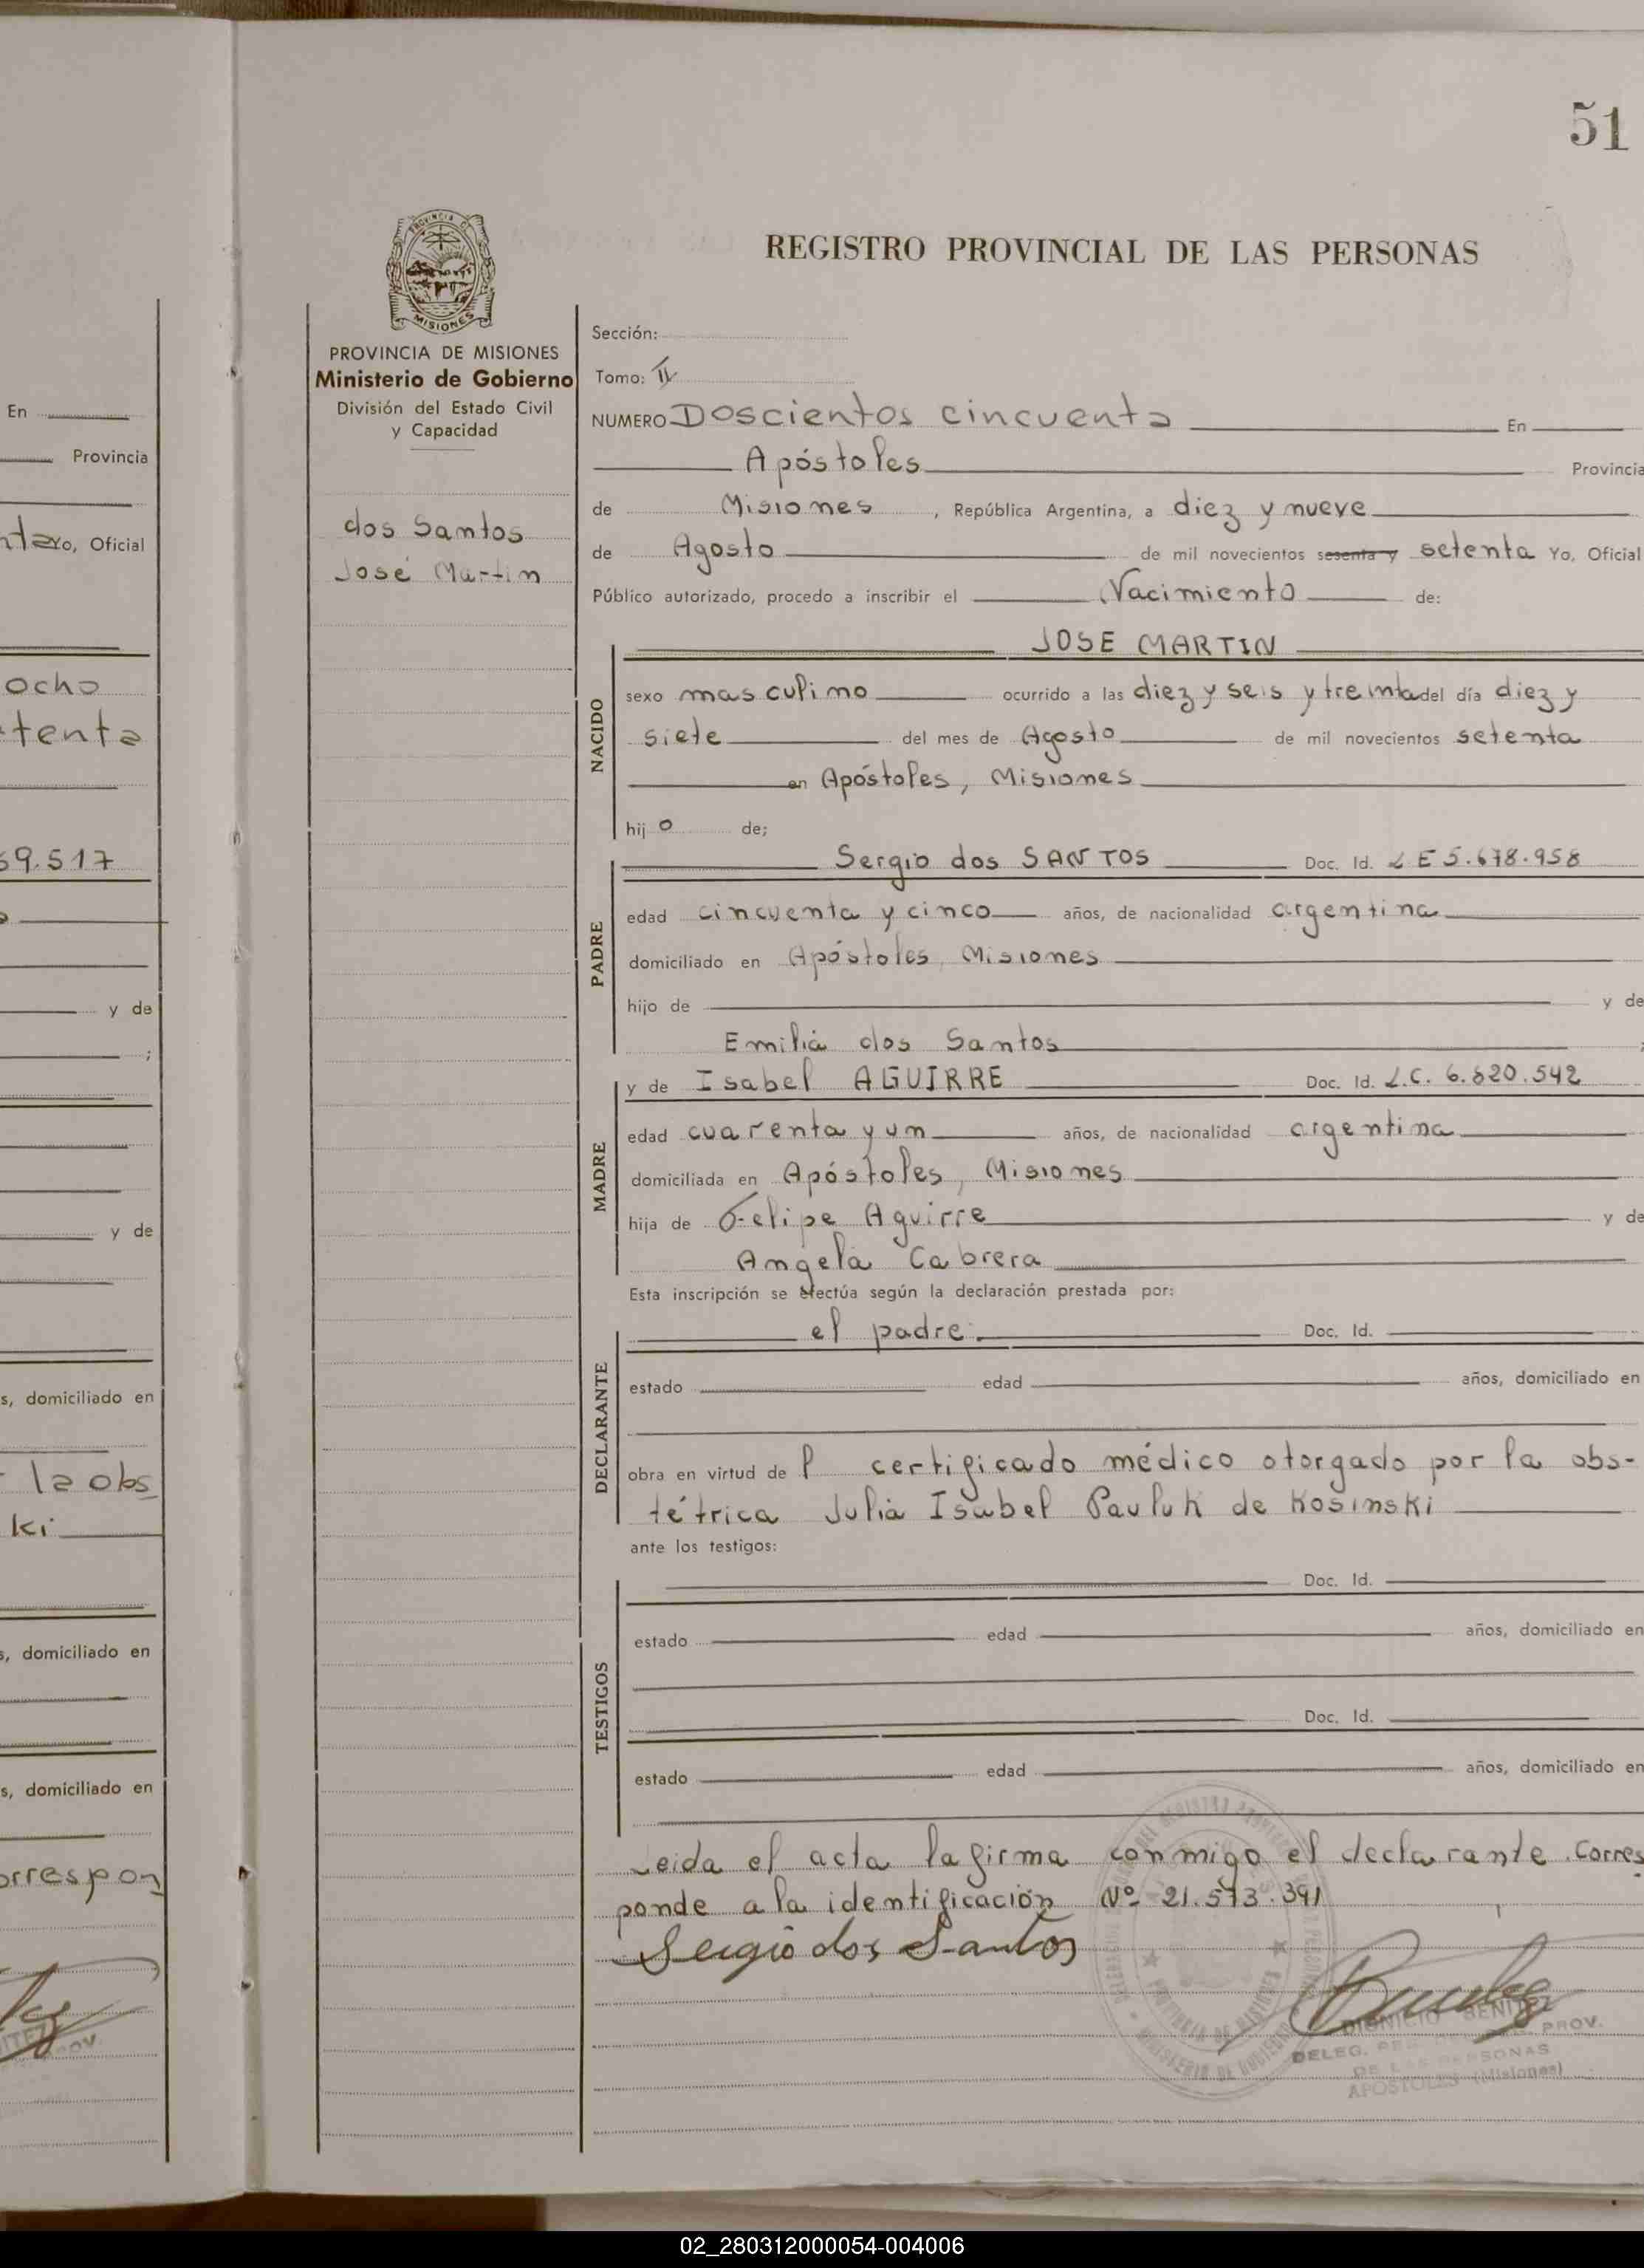 51
REGISTRO PROVINCIAL DE LAS PERSONAS
PROVINCIA DE MISIONES
Ministerio de Gobierno
División del Estado Civil
y Capacidad
dos Santos
José Martin
Sección:
Tomo: II
NUMERO Doscientos cincuenta En
Apóstoles Provincia
de Misiones, República Argentina, a diez y nueve
de Agosto de mil novecientos sesenta y setenta Yo, Oficial
Público autorizado, procedo a inscribir el Nacimiento de:
JOSE MARTIN
NACIDO
sexo masculino ocurrido a las diez y seis y treinta del día diez y
siete del mes de Agosto de mil novecientos setenta
en Apóstoles, Misiones
hijo de;
PADRE
Sergio dos SANTOS Doc. Id. L E 5.678.958
edad cincuenta y cinco años, de nacionalidad argentina
domiciliado en Apóstoles, Misiones
hijo de y de
Emilia dos Santos ;
MADRE
y de Isabel AGUIRRE Doc. Id. L.C. 6.820.542
edad cuarenta y un años, de nacionalidad argentina
domiciliada en Apóstoles, Misiones
hija de Felipe Aguirre y de
Angela Cabrera
Esta inscripción se efectúa según la declaración prestada por:
DECLARANTE
el padre. Doc. Id.
estado edad años, domiciliado en
obra en virtud de l certificado médico otorgado por la obs-
tétrica Julia Isabel Pauluk de Kosinski
ante los testigos:
TESTIGOS
Doc. Id.
estado edad años, domiciliado en
Doc. Id.
estado edad años, domiciliado en
Leida el acta la firma conmigo el declarante. Corres
ponde a la identificación Nº 21.573.391
Sergio dos Santos
DIONICIO BENITEZ
DELEG. REG. PROV.
DE LAS PERSONAS
APOSTOLES (Misiones)
En
Provincia
Yo, Oficial
ocho
tenta
69.517
y de
;
y de
s, domiciliado en
la obs
ki
s, domiciliado en
s, domiciliado en
orrespon
02_280312000054-004006